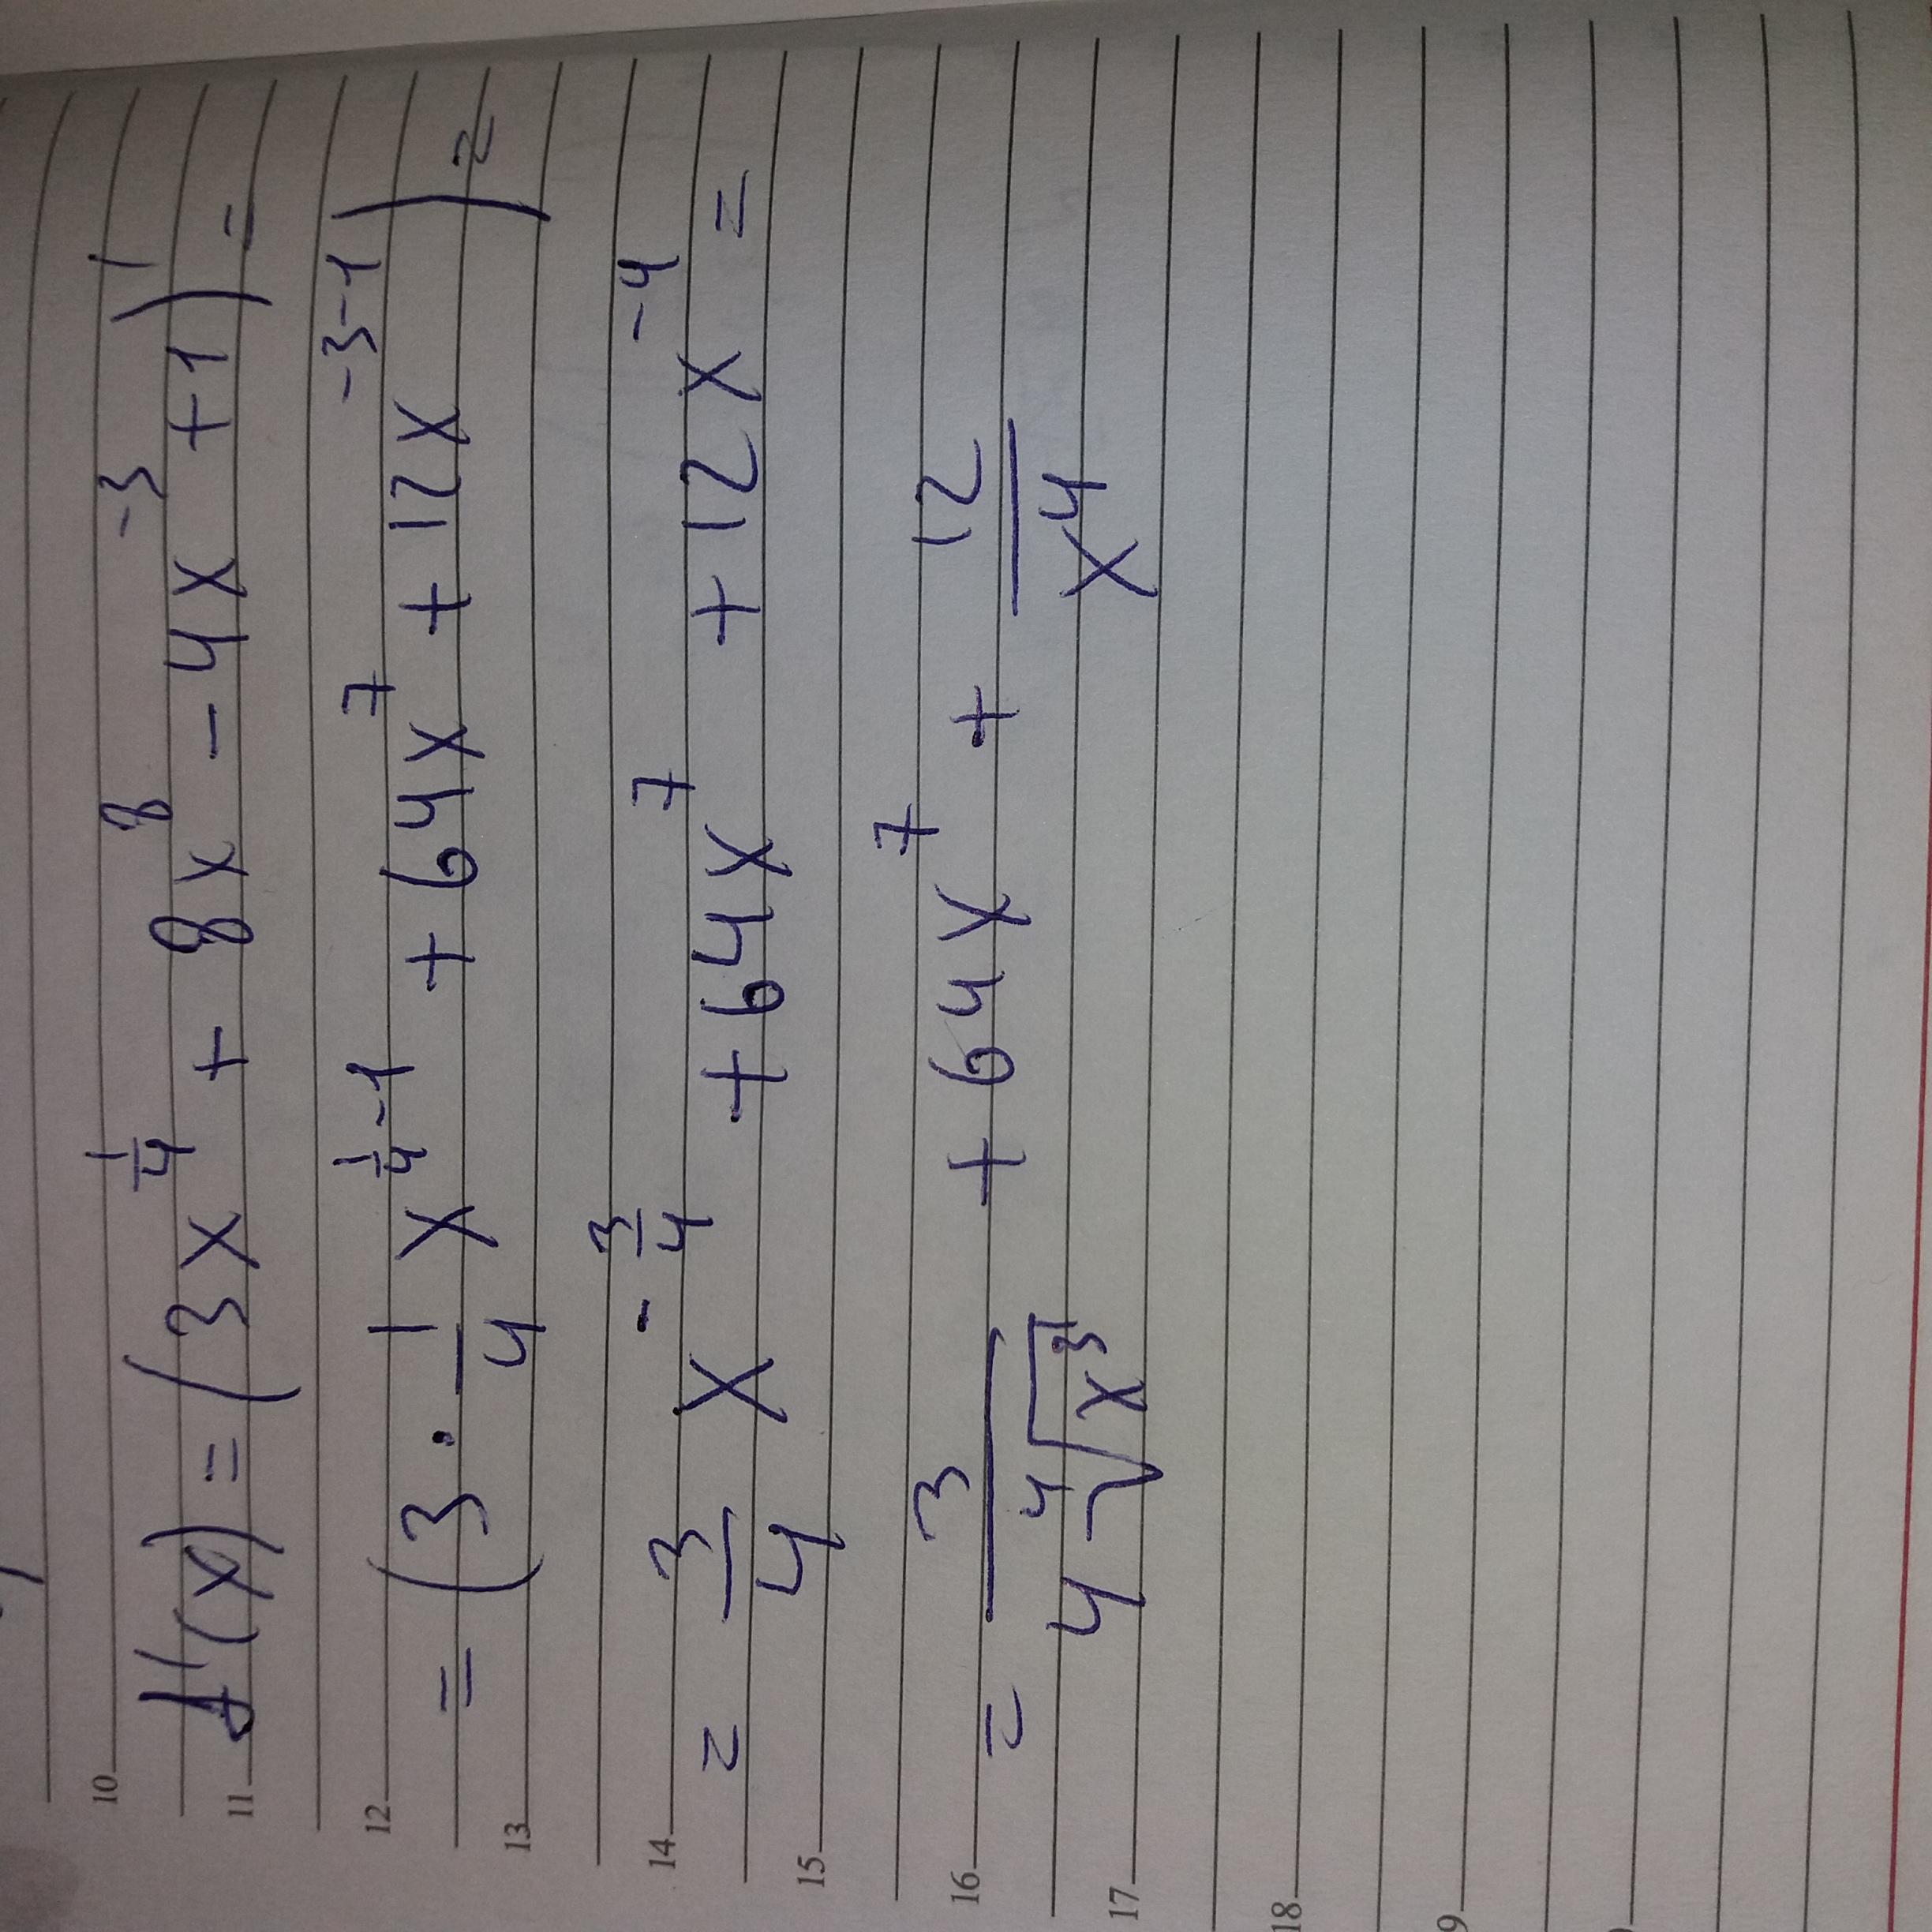 10
f'(x) = (3x^{\frac{1}{4}} + 8x^8 - 4x^{-3} + 1)' =
11
12
= (3 \cdot \frac{1}{4} x^{\frac{1}{4}-1} + 64x^7 + 12x^{-3-1}) =
13
14
= \frac{3}{4} x^{-\frac{3}{4}} + 64x^7 + 12x^{-4} =
15
16
= \frac{3}{4\sqrt[4]{x^3}} + 64x^7 + \frac{12}{x^4}
17
18
9